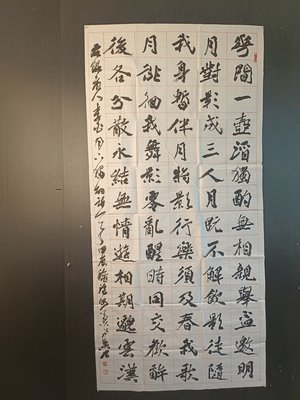 花間一壺酒獨酌無相親舉盃邀明
月對影成三人月既不解飲影徒隨
我身暫伴月將影行樂須及春我歌
月徘徊我舞影零亂醒時同交歡醉
後各分散永結無情遊相期邈雲漢
右錄唐人李白月下獨酌詩一 甲辰